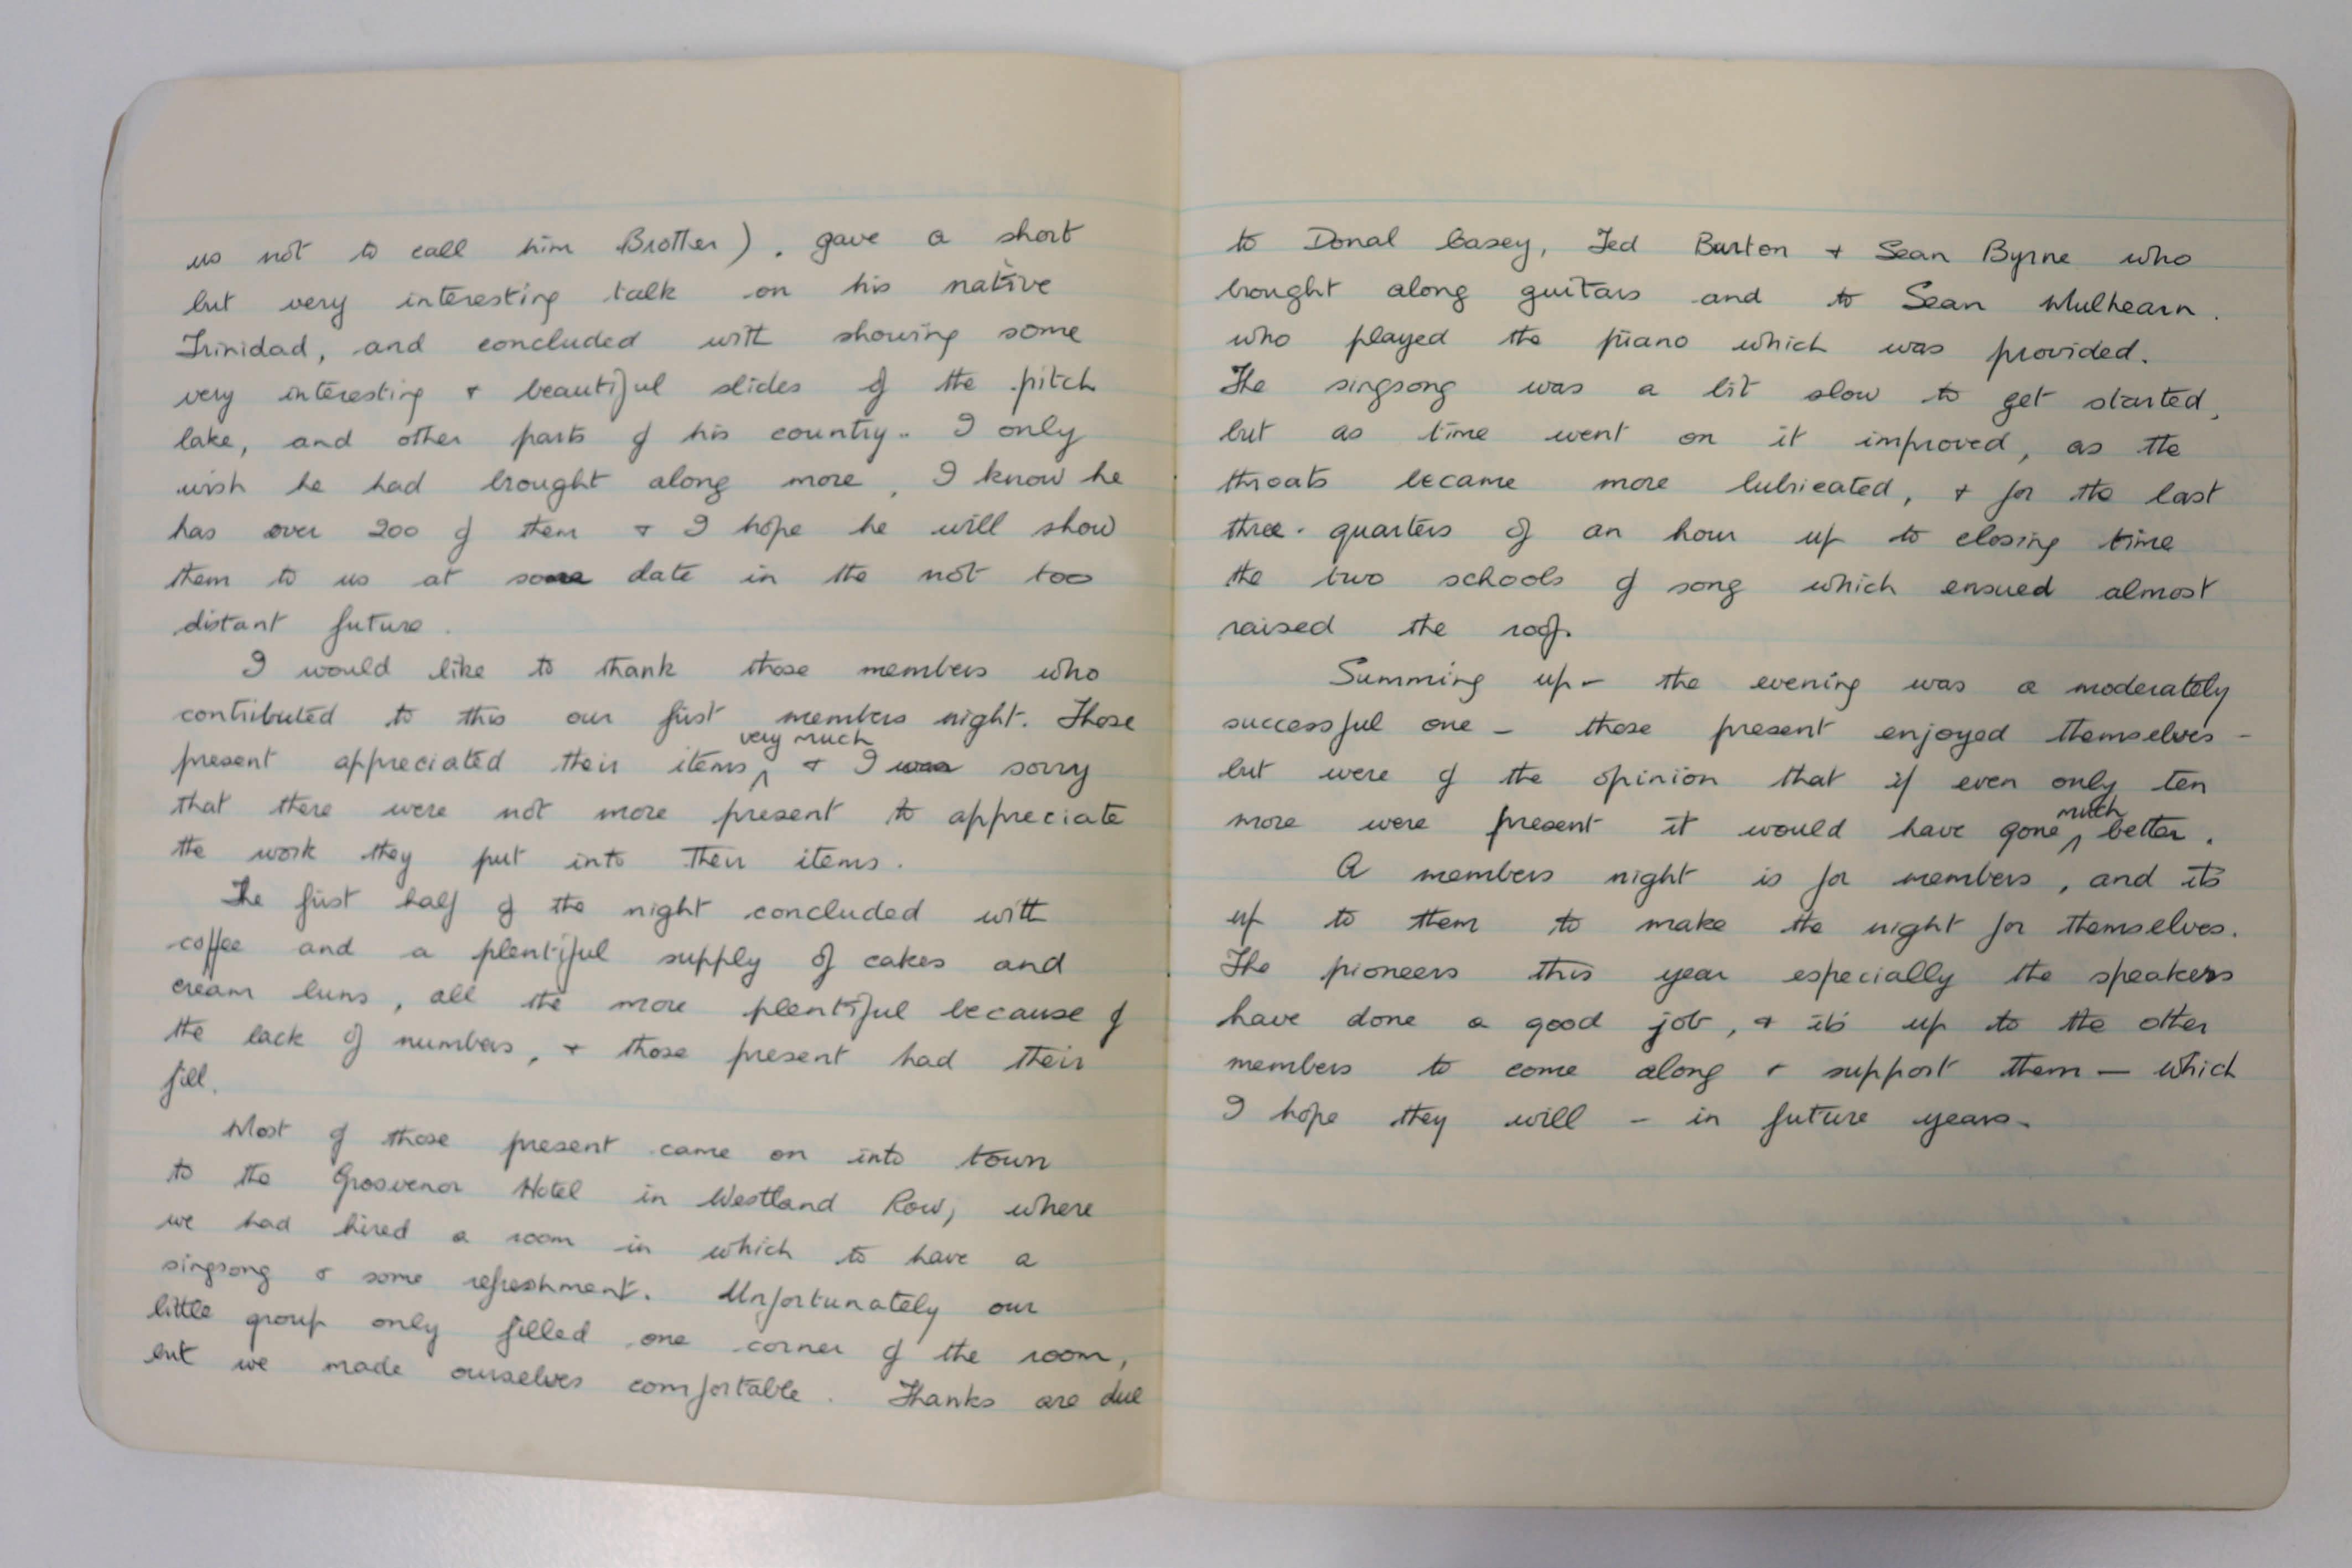 us not to call him Brother). gave a short
but very interesting talk on his native
Trinidad, and concluded with showing some
very interesting & beautiful slides of the pitch
lake, and other parts of his country.. I only
wish he had brought along more, I know he
has over 200 of them & I hope he will show
them to us at some date in the not too
distant future.
I would like to thank those members who
contributed to this our first members night. Those
present appreciated their items very much & I was sorry
that there were not more present to appreciate
the work they put into their items.
The first half of the night concluded with
coffee and a plentiful supply of cakes and
cream buns, all the more plentiful because of
the lack of numbers, & those present had their
fill.
Most of those present came on into town
to the Grosvenor Hotel in Westland Row, where
we had hired a room in which to have a
singsong & some refreshment. Unfortunately our
little group only filled one corner of the room,
but we made ourselves comfortable. Thanks are due
to Donal Casey, Ted Burton & Sean Byrne who
brought along guitars and to Sean Mulhearn.
who played the piano which was provided.
The singsong was a bit slow to get started,
but as time went on it improved, as the
throats became more lubricated, & for the last
three-quarters of an hour up to closing time
the two schools of song which ensued almost
raised the roof.
Summing up - the evening was a moderately
successful one - those present enjoyed themselves -
but were of the opinion that if even only ten
more were present it would have gone much better.
A members night is for members, and its
up to them to make the night for themselves.
The pioneers this year especially the speakers
have done a good job, & its up to the other
members to come along & support them — which
I hope they will - in future years.